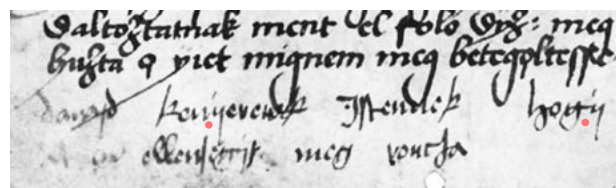 valtoztatnak ment el folo vyz: meg
huzta o yiet mignem meg betegoltesse
kenyerewnk Istennek hogy
ellensegit meg rontha